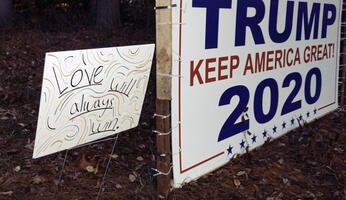 Love will
always
win.
TRUMP
KEEP AMERICA GREAT!
2020